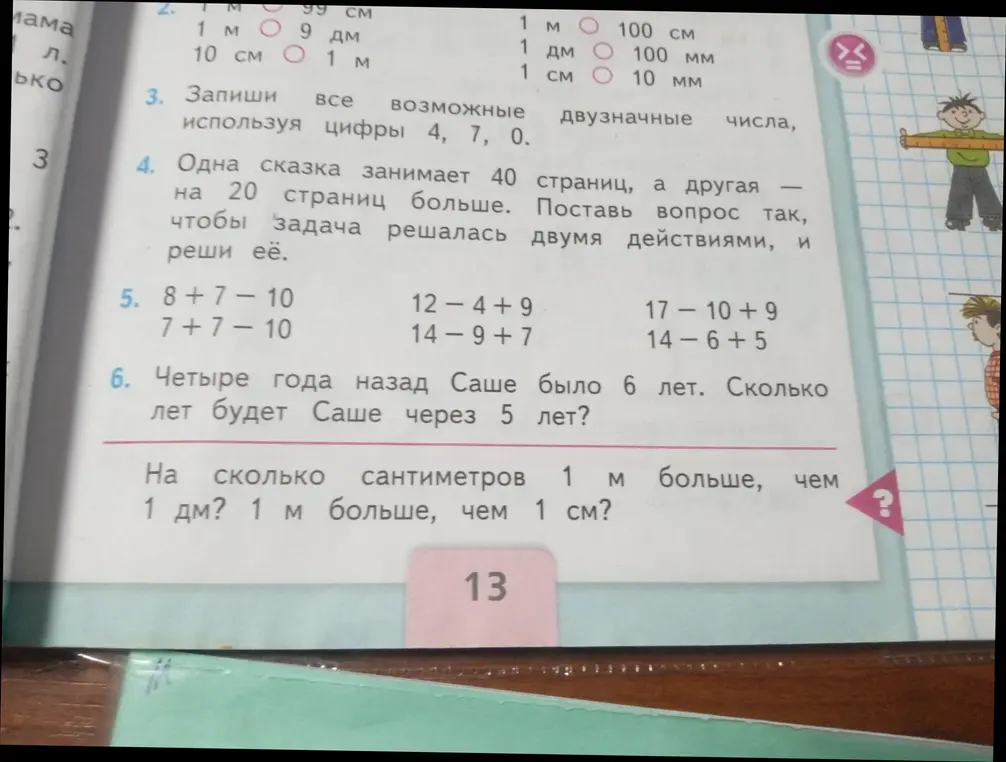 мама
л.
ько
3
2. 1 м 99 см
1 м 9 дм
10 см 1 м
1 м 100 см
1 дм 100 мм
1 см 10 мм
3. Запиши все возможные двузначные числа,
используя цифры 4, 7, 0.
4. Одна сказка занимает 40 страниц, а другая —
на 20 страниц больше. Поставь вопрос так,
чтобы задача решалась двумя действиями, и
реши её.
5. 8 + 7 − 10 12 − 4 + 9 17 − 10 + 9
7 + 7 − 10 14 − 9 + 7 14 − 6 + 5
6. Четыре года назад Саше было 6 лет. Сколько
лет будет Саше через 5 лет?
На сколько сантиметров 1 м больше, чем
1 дм? 1 м больше, чем 1 см?
?
13